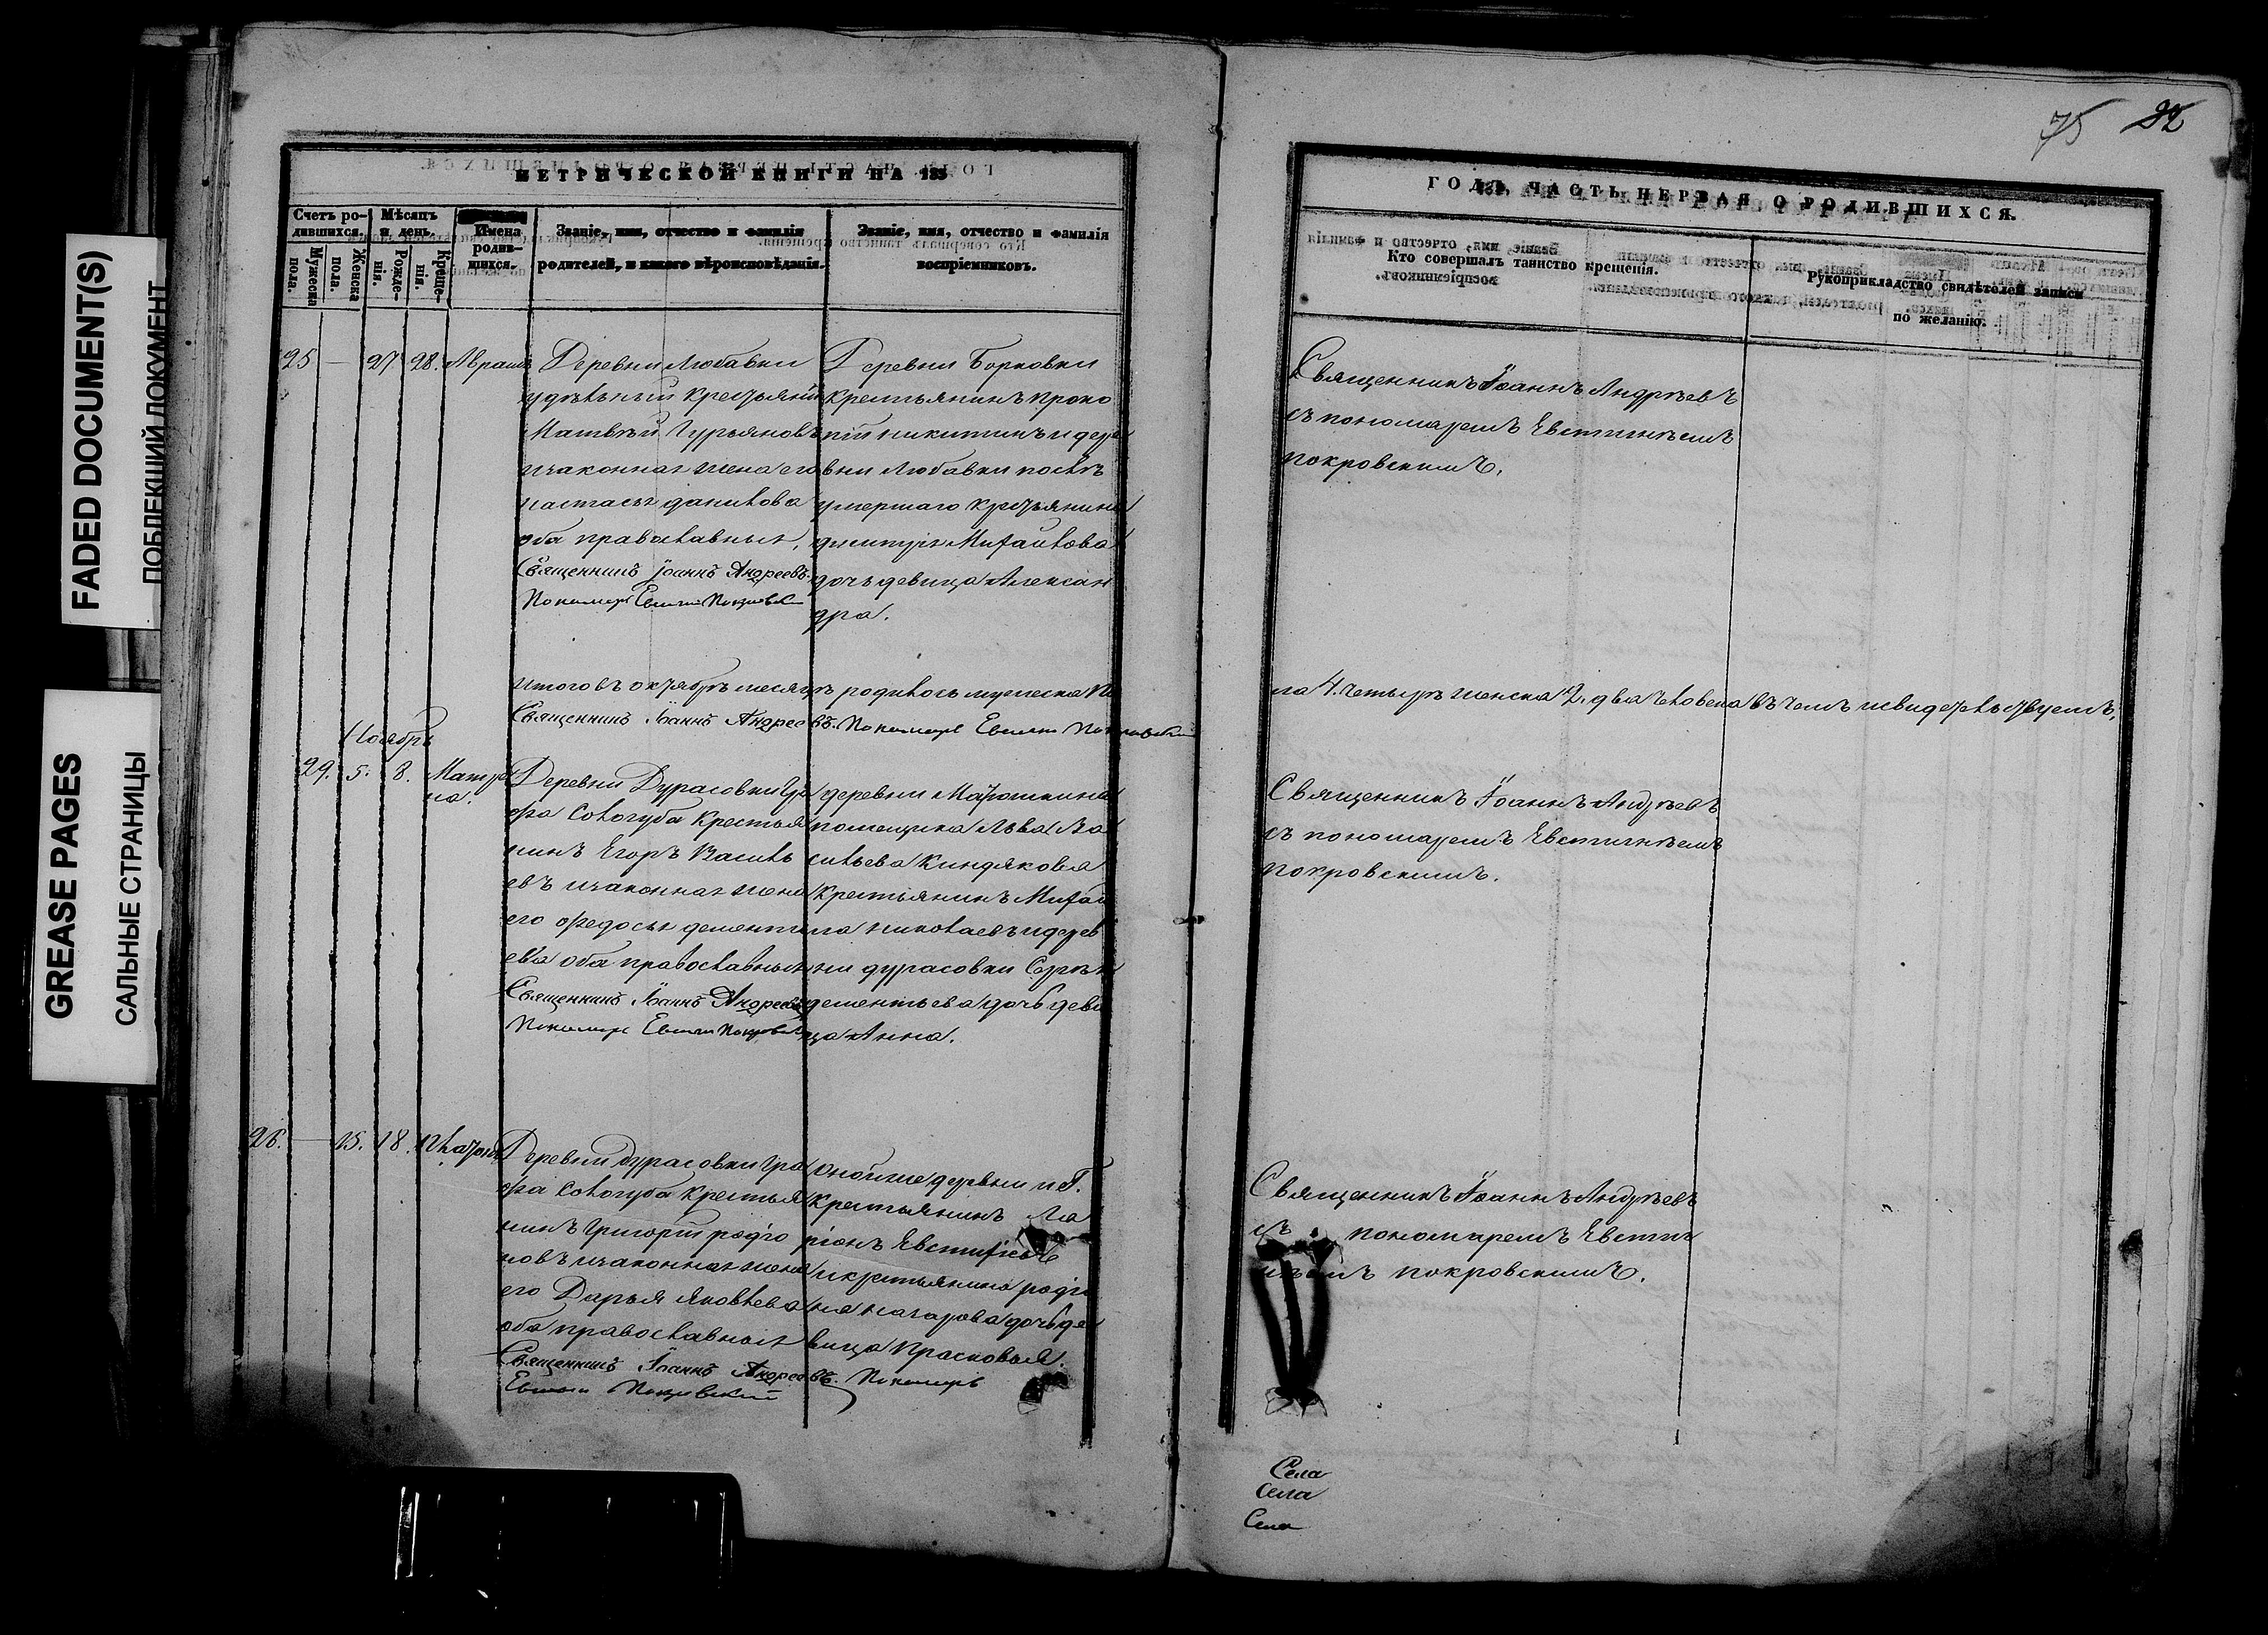 FADED DOCUMENT(S)
ПОБЛЕКШИЙ ДОКУМЕНТ
GREASE PAGES
САЛЬНЫЕ СТРАНИЦЫ
МЕТРИЧЕСКОЙ КНИГИ НА 185
Счетъ ро-
дившихся.
Мужеска
пола.
Женска
пола.
Мѣсяцъ
и день.
Рожде-
нія.
Креще-
нія.
Имена
родив-
шихся.
Званіе, имя, отчество и фамилія
родителей, и какого вѣроисповѣданія.
Званіе, имя, отчество и фамилія
воспріемниковъ.
25 — 27 28. Аврамъ
Деревни Любавки
удѣльный крестьянинъ
Матвѣй Гурьяновъ
и законная жена его
Настасья Данилова
оба православныя.
Священникъ Іоаннъ Андреевъ.
Пономарь
Деревни Борковки
крестьянинъ Проко
пій Никитинъ и дере
вни Любавки послѣ
умершаго крестьянина
Дмитрія Михайлова
дочь девица Алексан
дра.
итого въ октябрѣ месяцѣ родилось мужеска по
Священникъ Іоаннъ Андреевъ. Пономарь
Ноябрь
29. 5. 8. Матре
на.
Деревни Дурасовки Гра
фа Сологуба крестья
нинъ Егоръ Василь
евъ и законная жена
его Федосья Дементи
ева оба православныя
Священникъ Іоаннъ Андреевъ
Пономарь
деревни Матюшкина
помещика Льва Ва
сильева Киндякова
крестьянинъ Михай
ла Николаевъ и дерев
ни Дурасовки Сергѣя
Дементьева дочь деви
ца Анна.
26. — 15. 18. Платонъ
Деревни Дурасовки Гра
фа Сологуба крестья
нинъ Григорій Родіо
новъ и законная жена
его Дарья Яковлева
оба православныя
Священникъ Іоаннъ Андреевъ. Пономарь
Покровский
оной же деревни и Г.
крестьянинъ Ла
ріонъ
и крестьянина Родіо
на Назарова дочь де
вица Прасковья.
75 32
ГОДЪ, ЧАСТЬ ПЕРВАЯ, О РОДИВШИХСЯ.
Кто совершалъ таинство крещенія.
Рукоприкладство свидѣтелей записи
по желанію.
Священникъ Іоаннъ Андрѣевъ
съ пономаремъ Евстигнѣемъ
Покровскимъ.
ла 4. четырѣ женска 2. два человека въ чемъ и свидетельствуемъ.
Священникъ Іоаннъ Андрѣевъ
съ пономаремъ Евстигнѣемъ
Покровскимъ.
Священникъ Іоаннъ Андрѣевъ
съ пономаремъ Евстиг
нѣемъ Покровскимъ.
Села
Села
Села